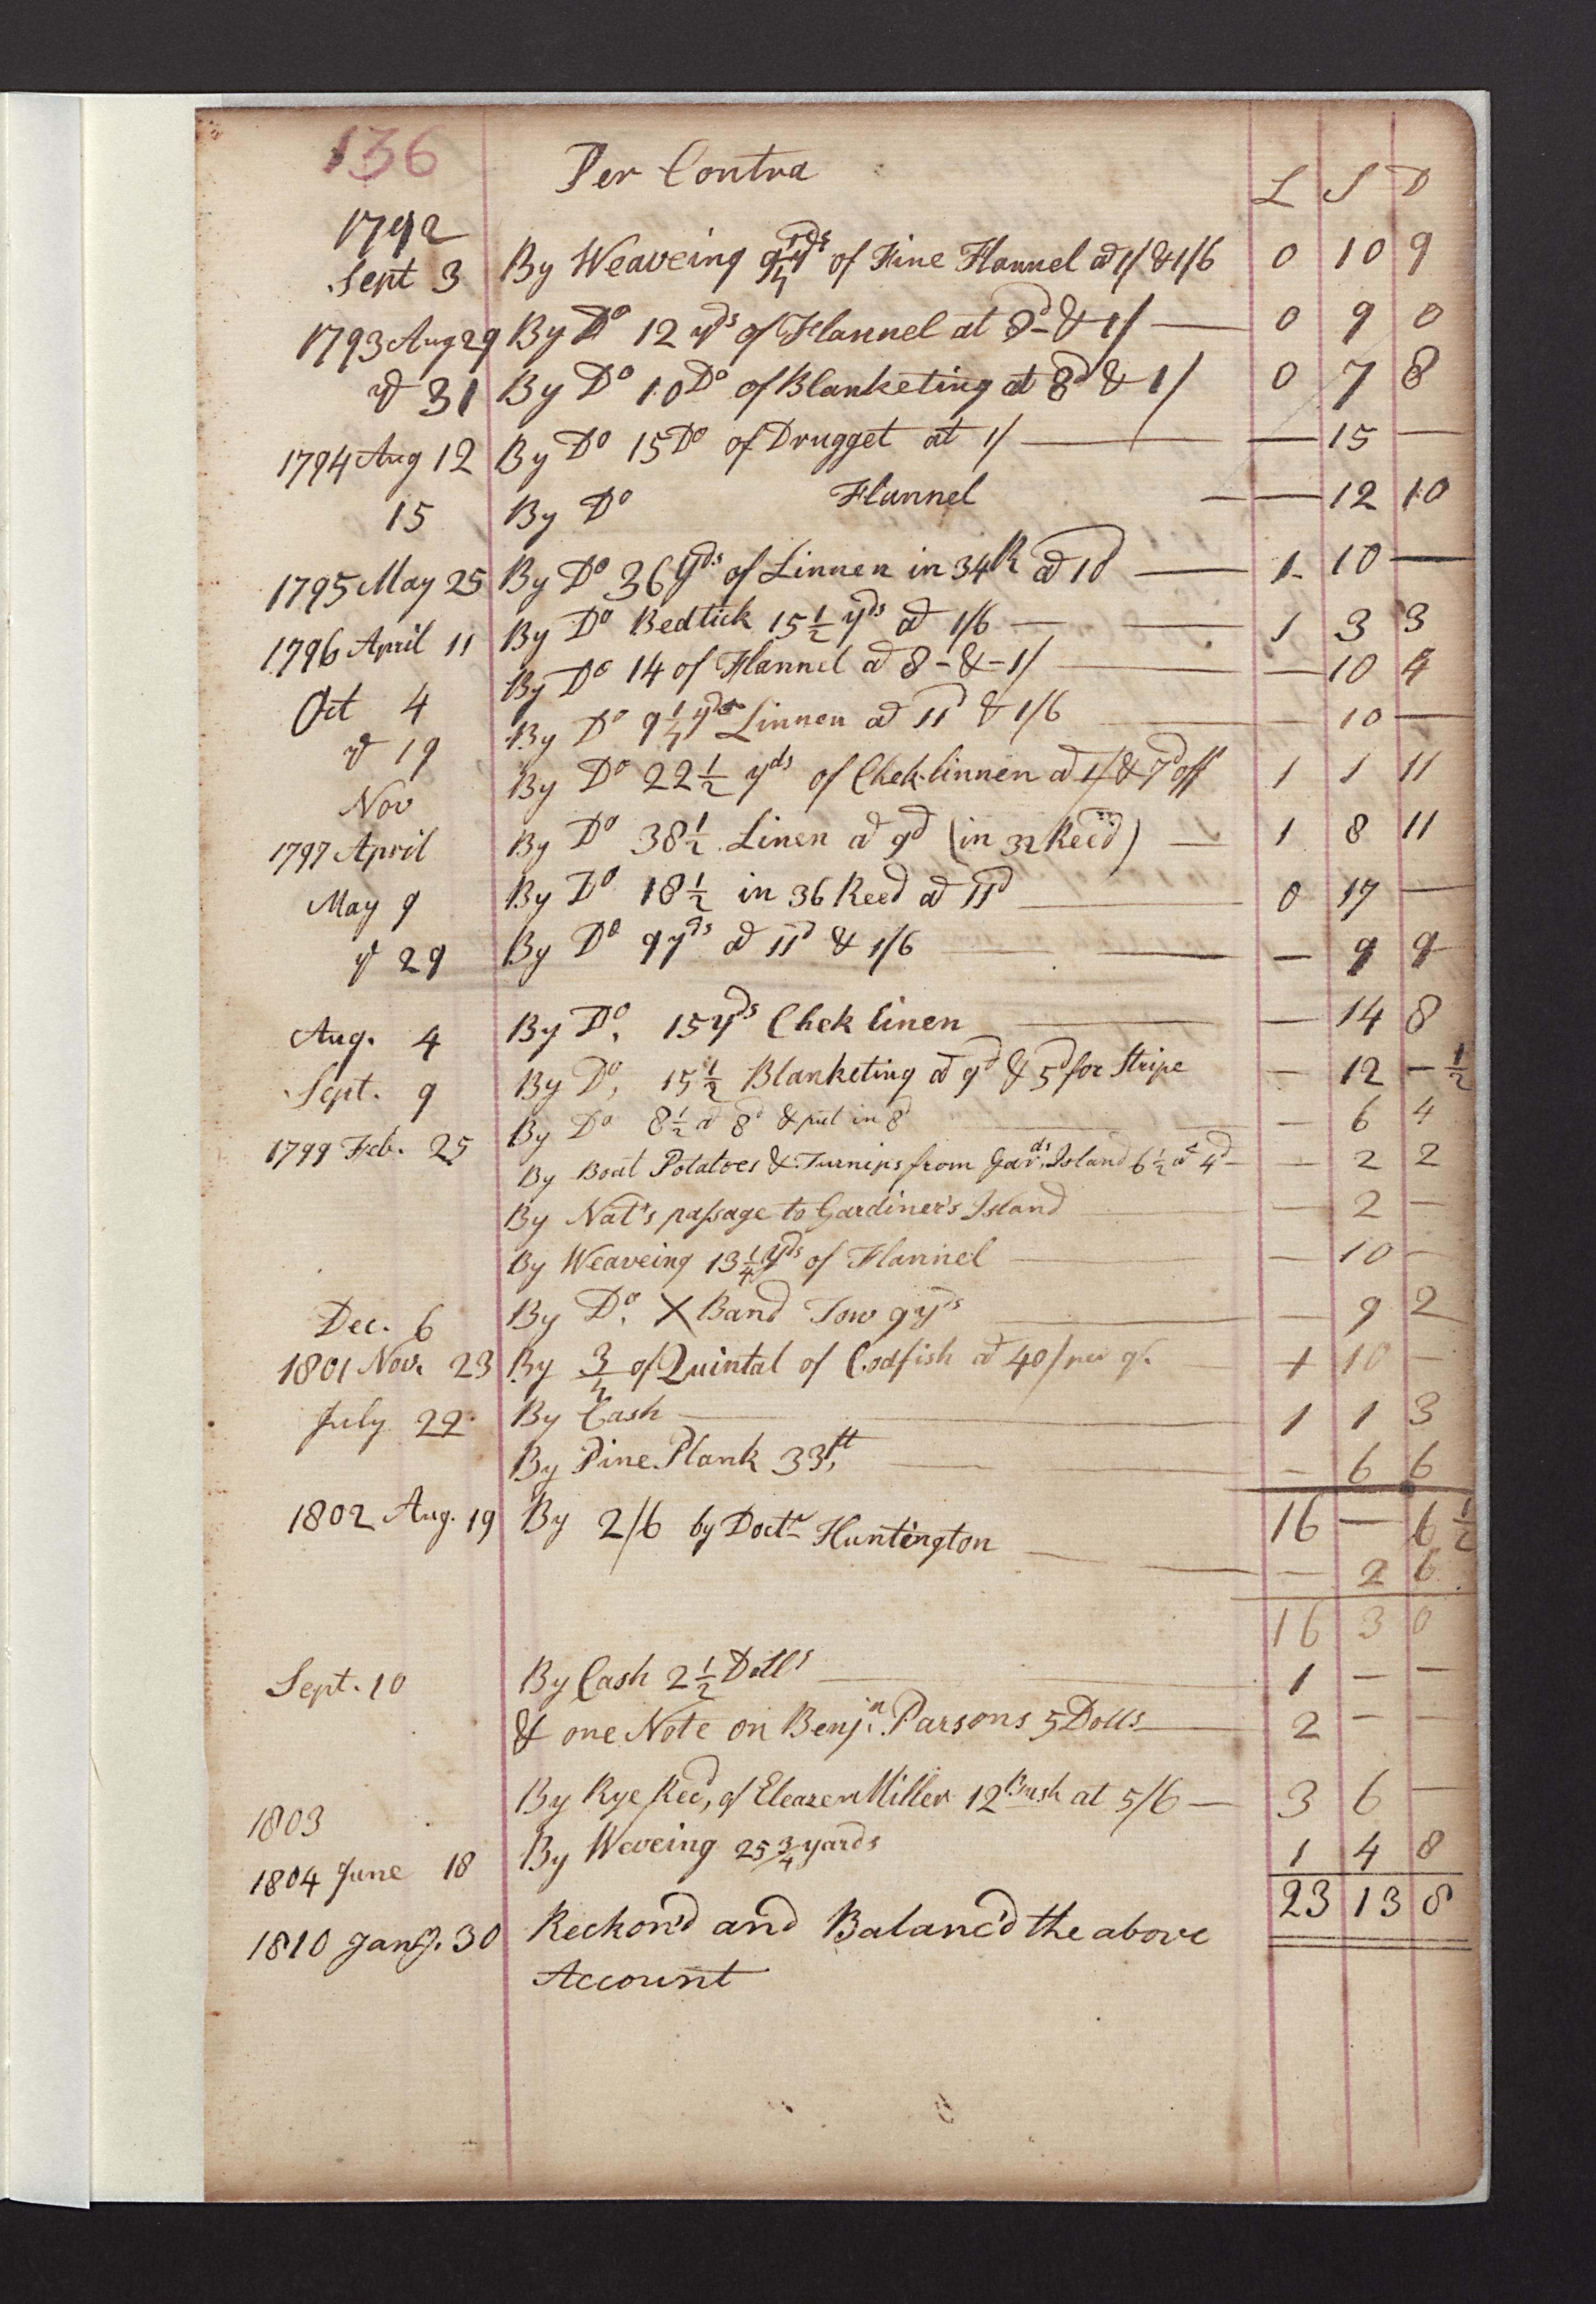 136 Per Contra L S D
1792
Sept 3 By Weaveing 9 1/4 yds of Fine Flannel at 1/ & 1/6 0 10 9
1793 Aug 29 By Do 12 yds of Flannel at 8d & 1/ — 0 9 0
31 By Do 10 Do of Blanketing at 8d & 1/ 0 7 8
1794 Aug 12 By Do 15 Do of Drugget at 1/ — — 15 —
15 By Do Flannel — — 12 10
1795 May 25 By Do 36 Yds of Linnen in 34 R at 10d — 1 10 —
1796 April 11 By Do Bedtick 15 1/2 yds at 1/6 — — 1 3 3
Oct 4 By Do 14 of Flannel at 8 - & - 1/ — — 10 4
19 By Do 9 1/4 yds Linnen at 11d & 1/6 — — 10 —
Nov By Do 22 1/2 yds of Chek-linnen at 1/ & 7d off 1 1 11
1797 April By Do 38 1/2 Linen at 9d (in 32 Reed) — 1 8 11
May 9 By Do 18 1/2 in 36 Reed at 11d — 0 17 —
29 By Do 9 yds at 11d & 1/6 — — — 9 9
Aug. 4 By Do, 15 yds Chek linen — — 14 8
Sept. 9 By Do, 15 1/2 Blanketing at 9d & 5d for Stripe — 12 — 1/2
1799 Feb. 25 By Do 8 1/2 at 8d & put in 8d — — 6 4
By Boat Potatoes & Turnips from Gards Island 6 1/2 at 4d — — 2 2
By Nat's passage to Gardiner's Island — — 2 —
By Weaveing 13 1/4 Yds of Flannel — — 10 —
Dec. 6 By Do. X Band Tow 9 yds — — 9 2
1801 Nov. 23 By 3/4 of Quintal of Codfish at 40/ per ql. 1 10 —
July 22 By Cash — 1 1 3
By Pine Plank 33 ft, — — 6 6
1802 Aug. 19 By 2/6 by Doctr Huntington — 16 — 6 1/2
— 2 6
16 3 0
Sept. 10 By Cash 2 1/2 Dolls — 1 — —
& one Note on Benjn. Parsons 5 Dolls — 2 — —
1803 By Rye Recd, of Eleazer Miller 12 Bush at 5/6 — 3 6 —
1804 June 18 By Weveing 25 3/4 yards 1 4 8
23 13 8
1810 Jany. 30 Reckon'd and Balanc'd the above
Account